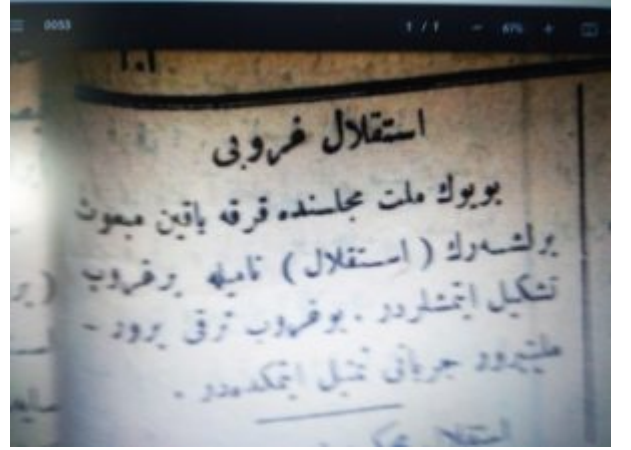 0053 1 / 1 − 67% +
استقلال غروبی
بویوك ملت مجلسنده قرقه یاقین مبعوث
برلشه‌رك ( استقلال ) نامیله برغروب
تشكیل ایتمشلردر . بوغروب ترقی پرور –
ملتپرور جریانی تمثیل ایتمكده‌در .
استقلال